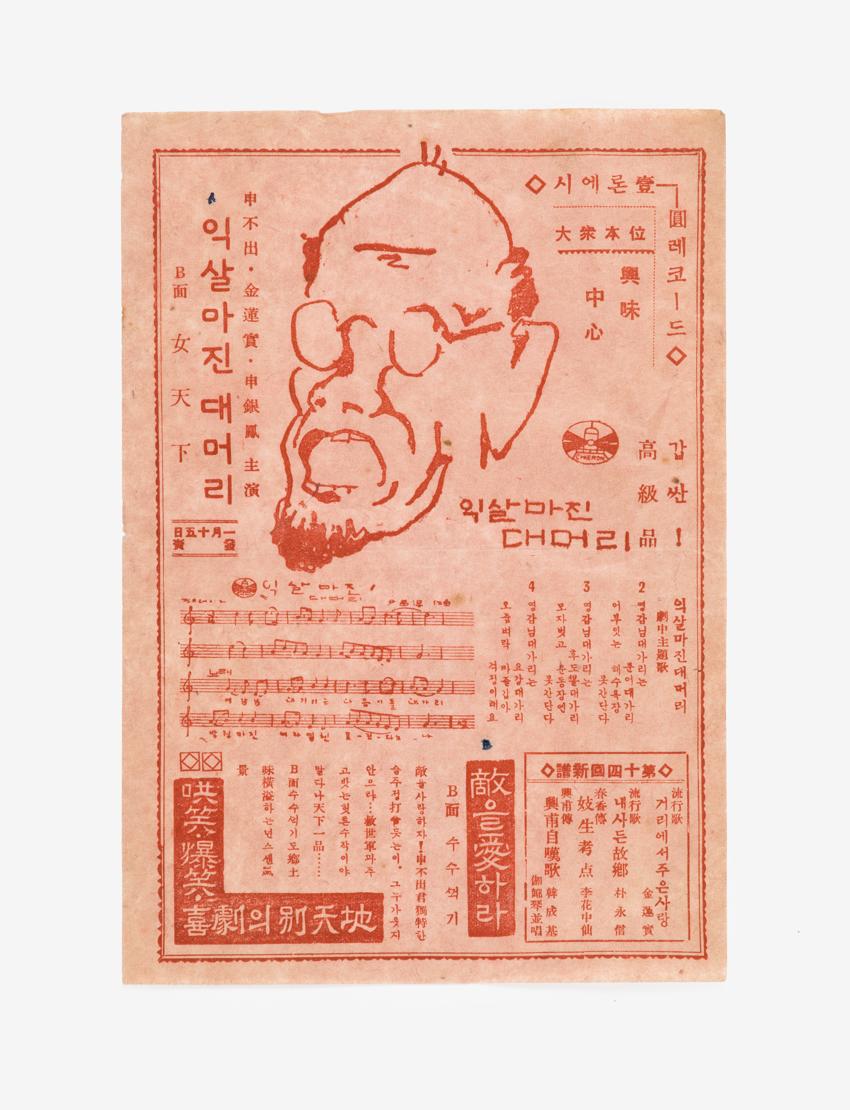 ◇시에론壹圓레코―드◇
大衆本位
興味
中心
갑싼!
高級品
CHIERON
익살마진
대머리
申不出·金蓮實·申銀鳳 主演
익살마진대머리
B面 女天下
一月十五日發賣
익살마진
대머리
익살마진대머리
劇中主題歌
2 영감님대가리는
문어대가리
어부잇는 해수욕장
못간단다
3 영감님대가리는
후도뽈대가리
모자벗고 운동장엔
못간단다
4 영감님대가리는
요강대가리
오즘벼락 마즐가바
걱정이래요
◇第十四回新譜◇
流行歌
거리에서주은사랑
金蓮實
流行歌
내사든故鄕 朴永信
春香傳
妓生考点 李花中仙
興甫傳
興甫自嘆歌 韓成基
伽倻琴並唱
敵을愛하라
B面 수수썩기
敵을사랑하자!申不出君獨特한
안으랴…救世軍과주
고밧는헛튼수작이야
말다나天下一品……
B面수수썩기도鄕土
味橫溢하는넌스센品
景
哄笑、爆笑、
喜劇의別天地